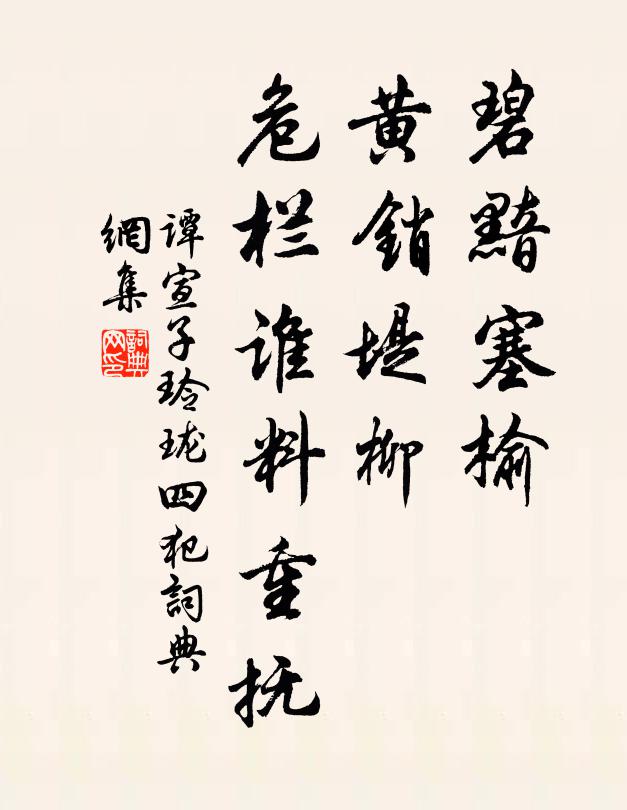 碧黯塞榆
黄銷堤柳
危栏谁料重抚
谭宣子玲珑四犯詞典
網集
詞典网印